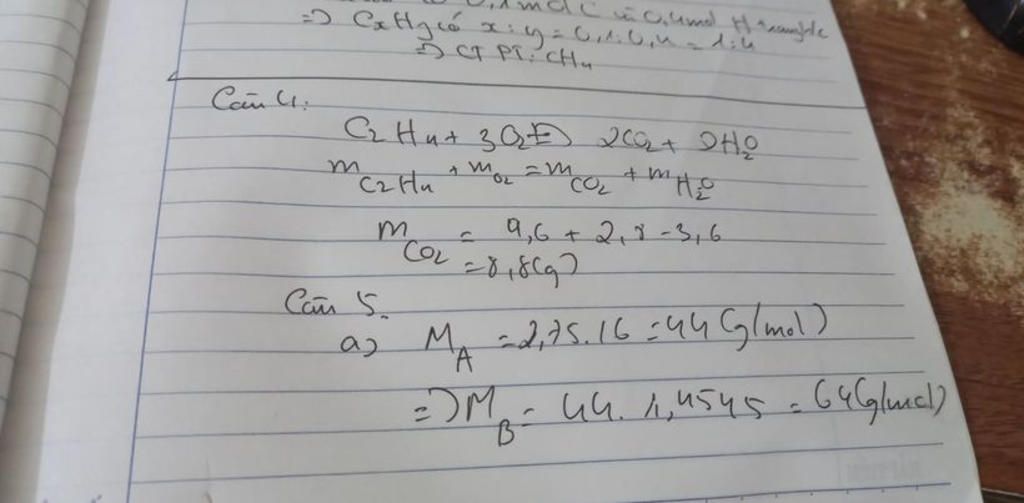 0,1 mol C và 0,4 mol H
=> CxHy có x:y = 0,1:0,4 = 1:4
=> CTPT: CH4
Câu 4:
C2H4 + 3O2 t° 2CO2 + 2H2O
m C2H4 + m O2 = m CO2 + m H2O
m CO2 = 9,6 + 2,8 - 3,6
= 8,8(g)
Câu 5.
a) MA = 2,75.16 = 44 (g/mol)
=> MB = 44. 1,4545 = 64(g/mol)